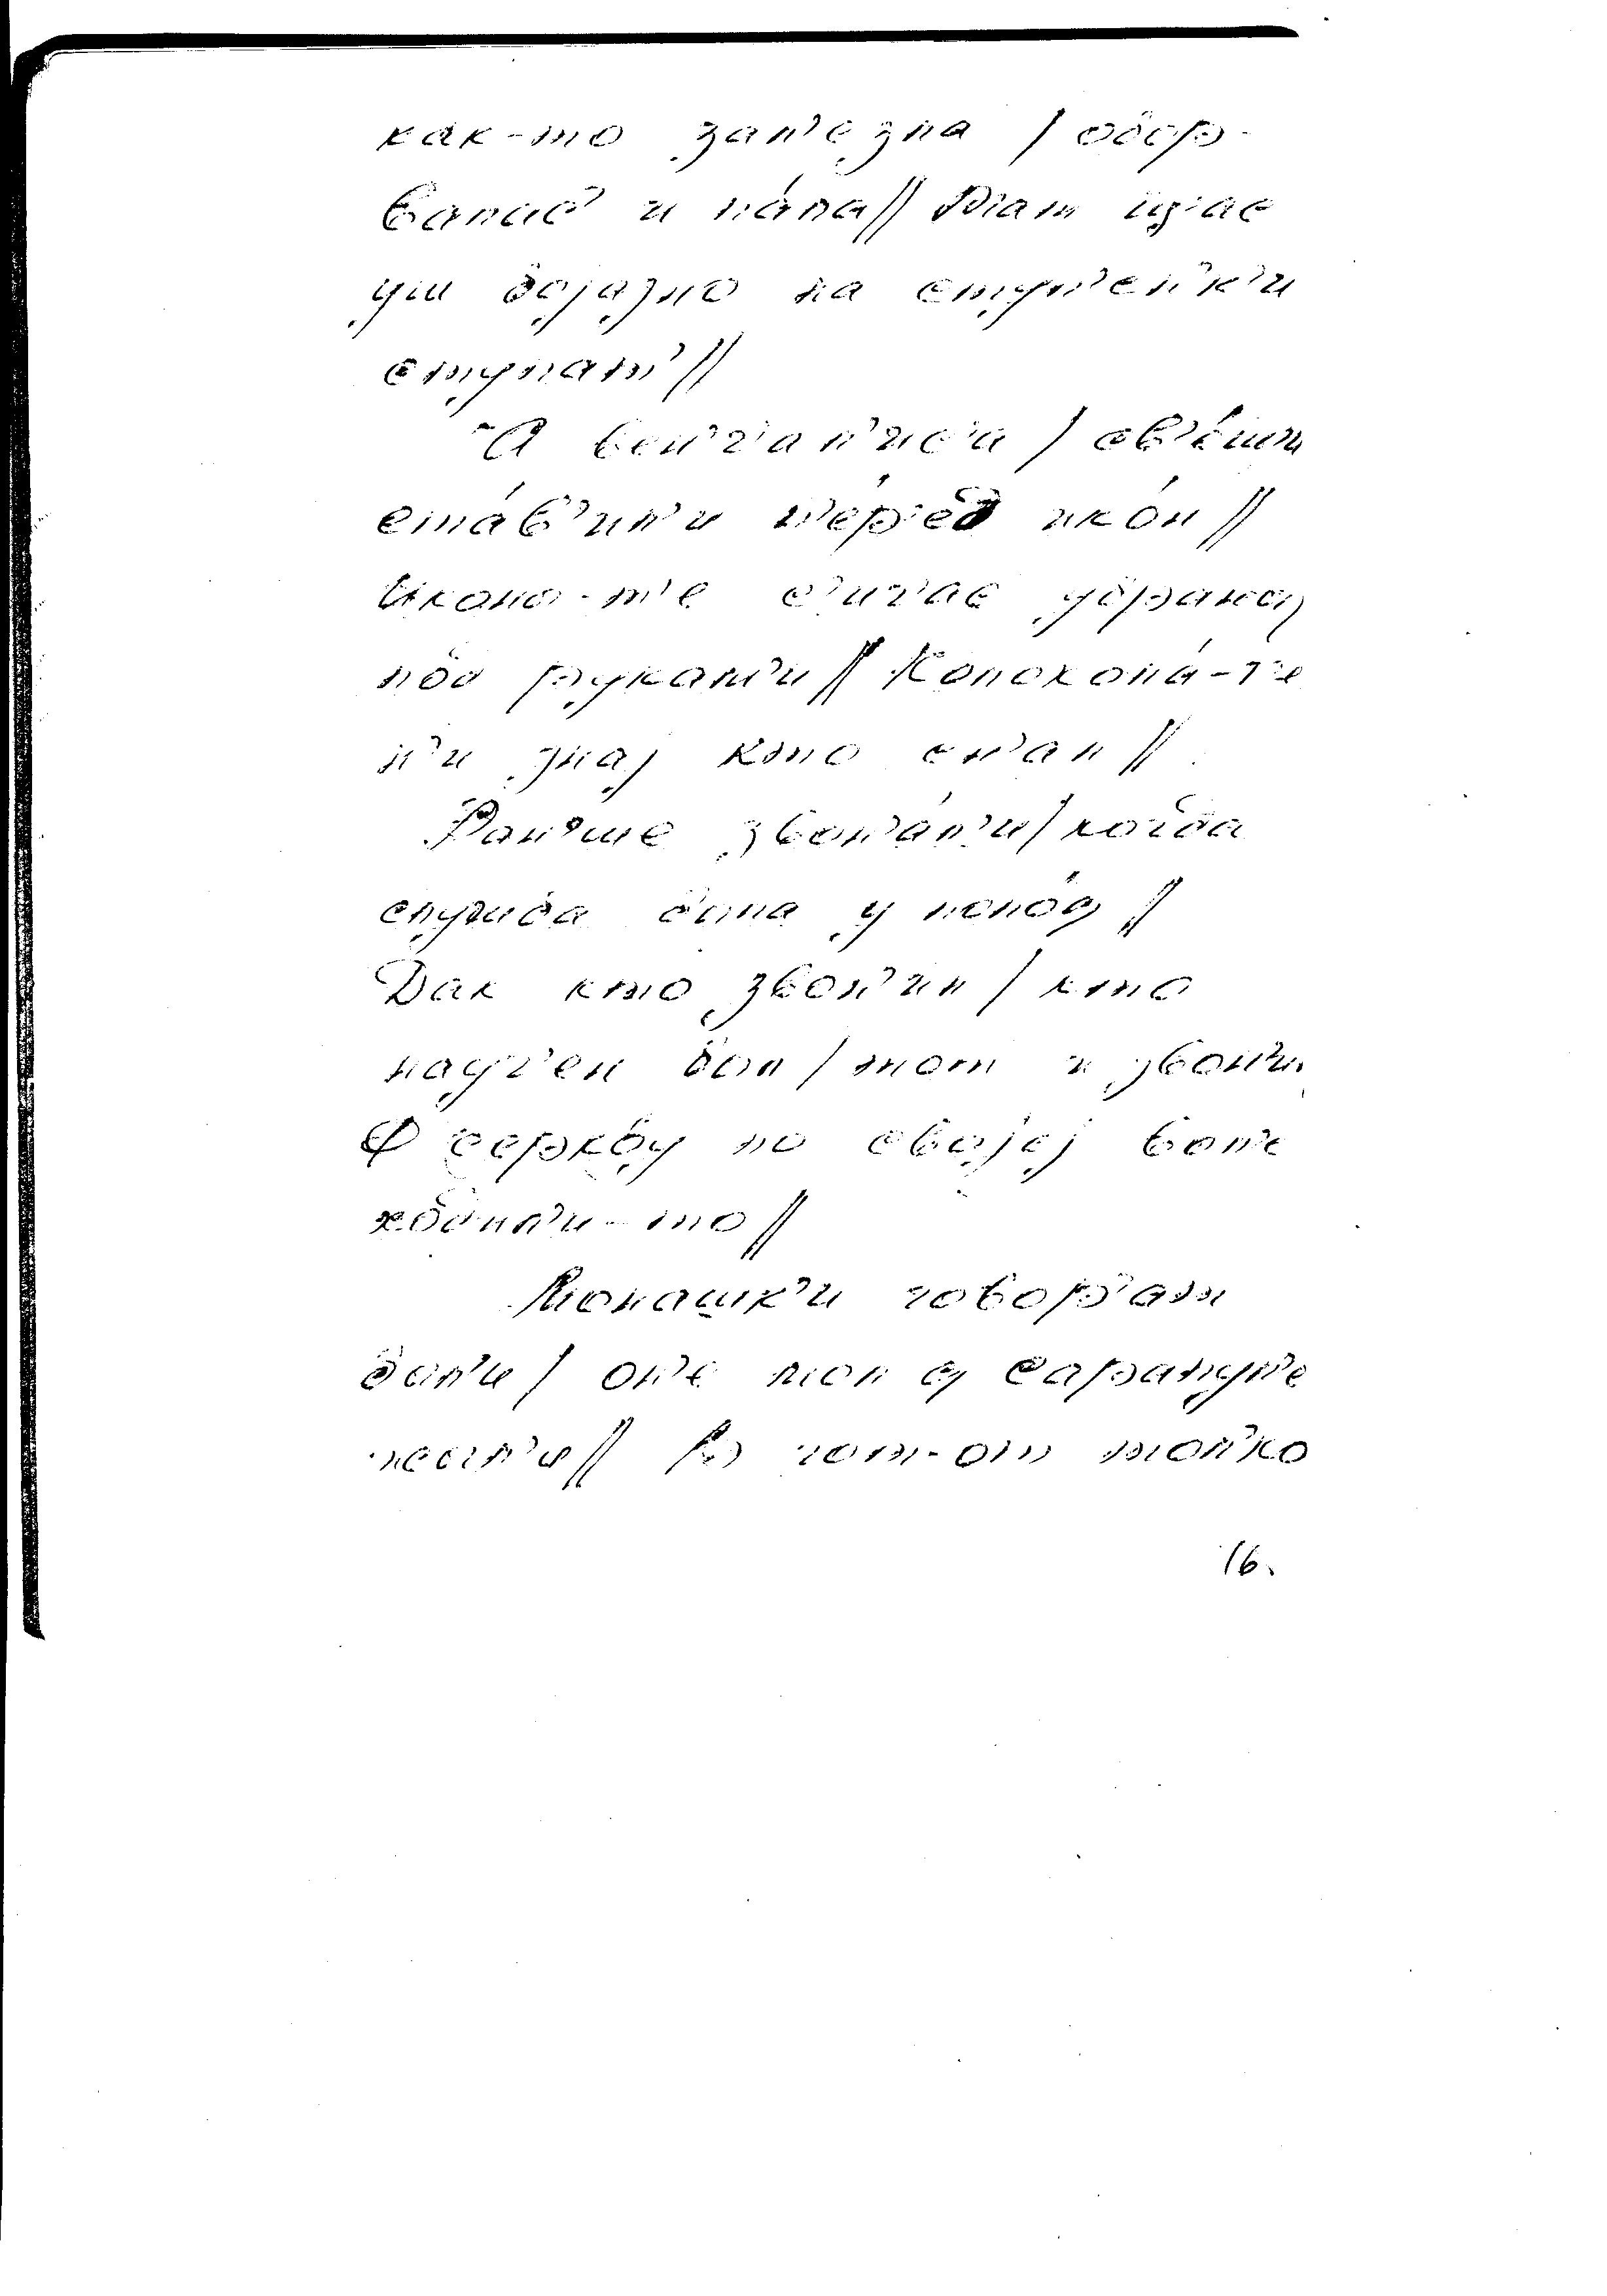 как-то зал'езла / обор-
валас' и пала// Там ц'ас
уш бојазно на ступ'ен'к'и
ступат'//
А в'ен'ч'ал'ис'а / св'ечи
став'ил'и п'ер'ед икон//
Икона-т'е с'ич'ас убрана
под руками// Колокола-т'е
н'и знај кто снал//
Ран'ше звон'ал'и / когда
служба была у попоф//
Дак кто звон'ил / кто
науч'ен был / тот и звон'ил
Ф церкву по својеј вол'е
ход'ил'и-то//
Монашк'и говор'ат
был'и / он'е там в Сарапул'е
жыл'и// год-от тол'ко
16.